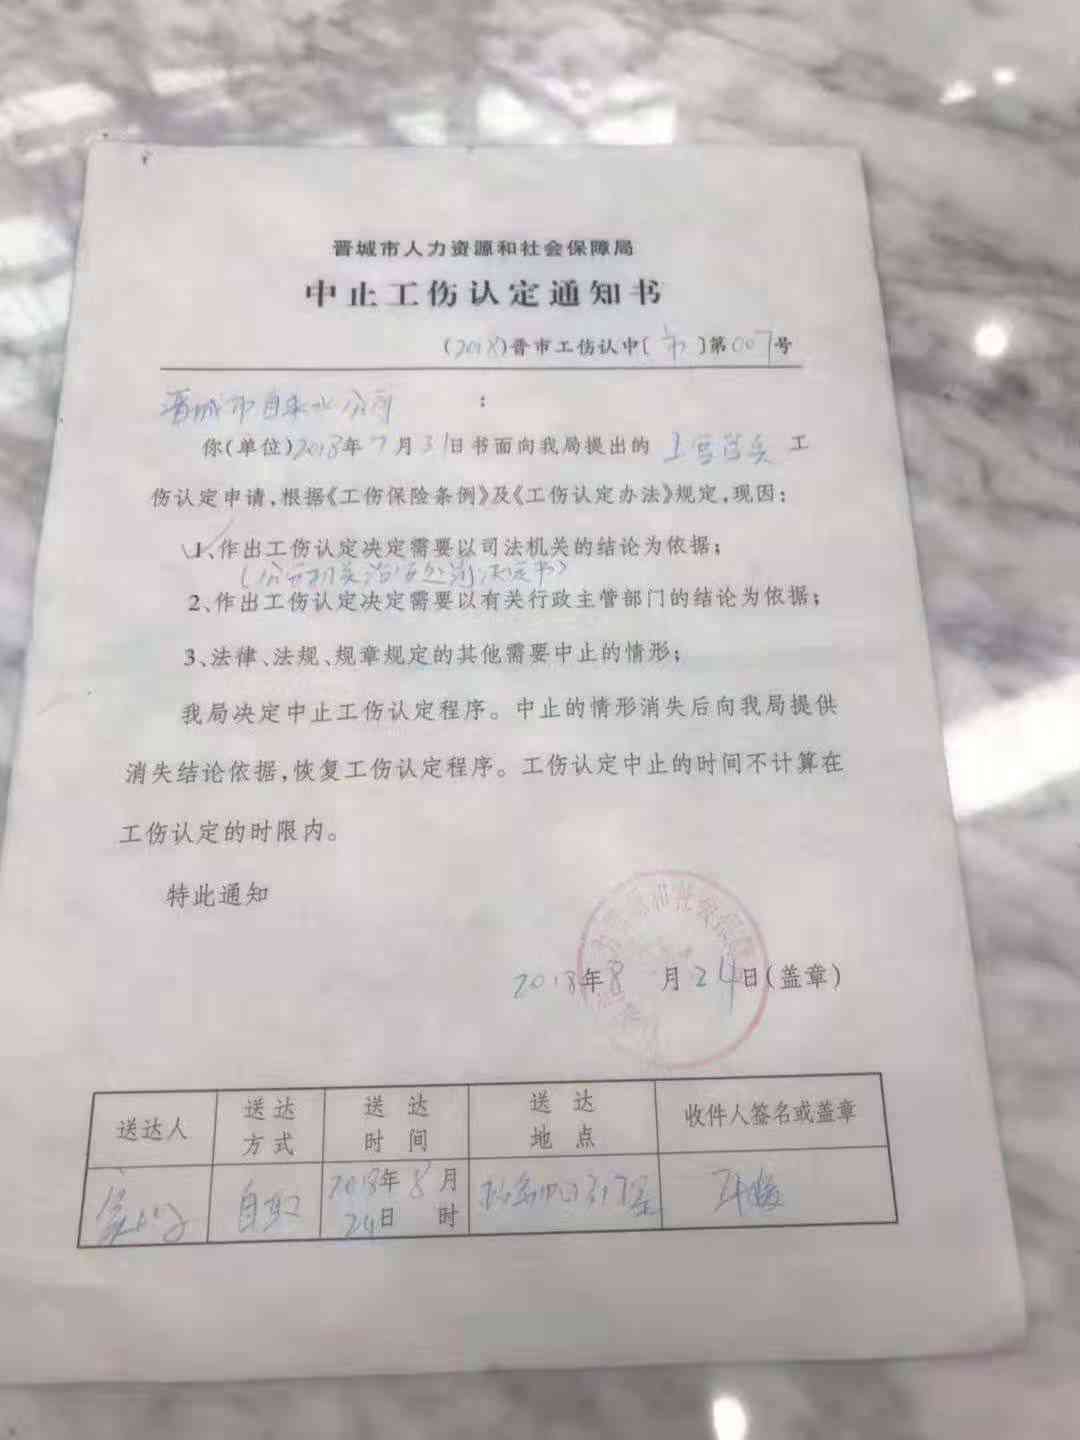 晋城市人力资源和社会保障局
中止工伤认定通知书
(2018)晋市工伤认中[市]第007号
晋城市自来水公司:
你(单位)2018年7月31日书面向我局提出的 工
伤认定申请,根据《工伤保险条例》及《工伤认定办法》规定,现因:
1、作出工伤认定决定需要以司法机关的结论为依据;
(公安机关治安处罚决定书)
2、作出工伤认定决定需要以有关行政主管部门的结论为依据;
3、法律、法规、规章规定的其他需要中止的情形;
我局决定中止工伤认定程序。中止的情形消失后向我局提供
消失结论依据,恢复工伤认定程序。工伤认定中止的时间不计算在
工伤认定的时限内。
特此通知
2018年8月24日(盖章)
送达人 送达方式 送达时间 送达地点 收件人签名或盖章
自取 2018年8月24日 时